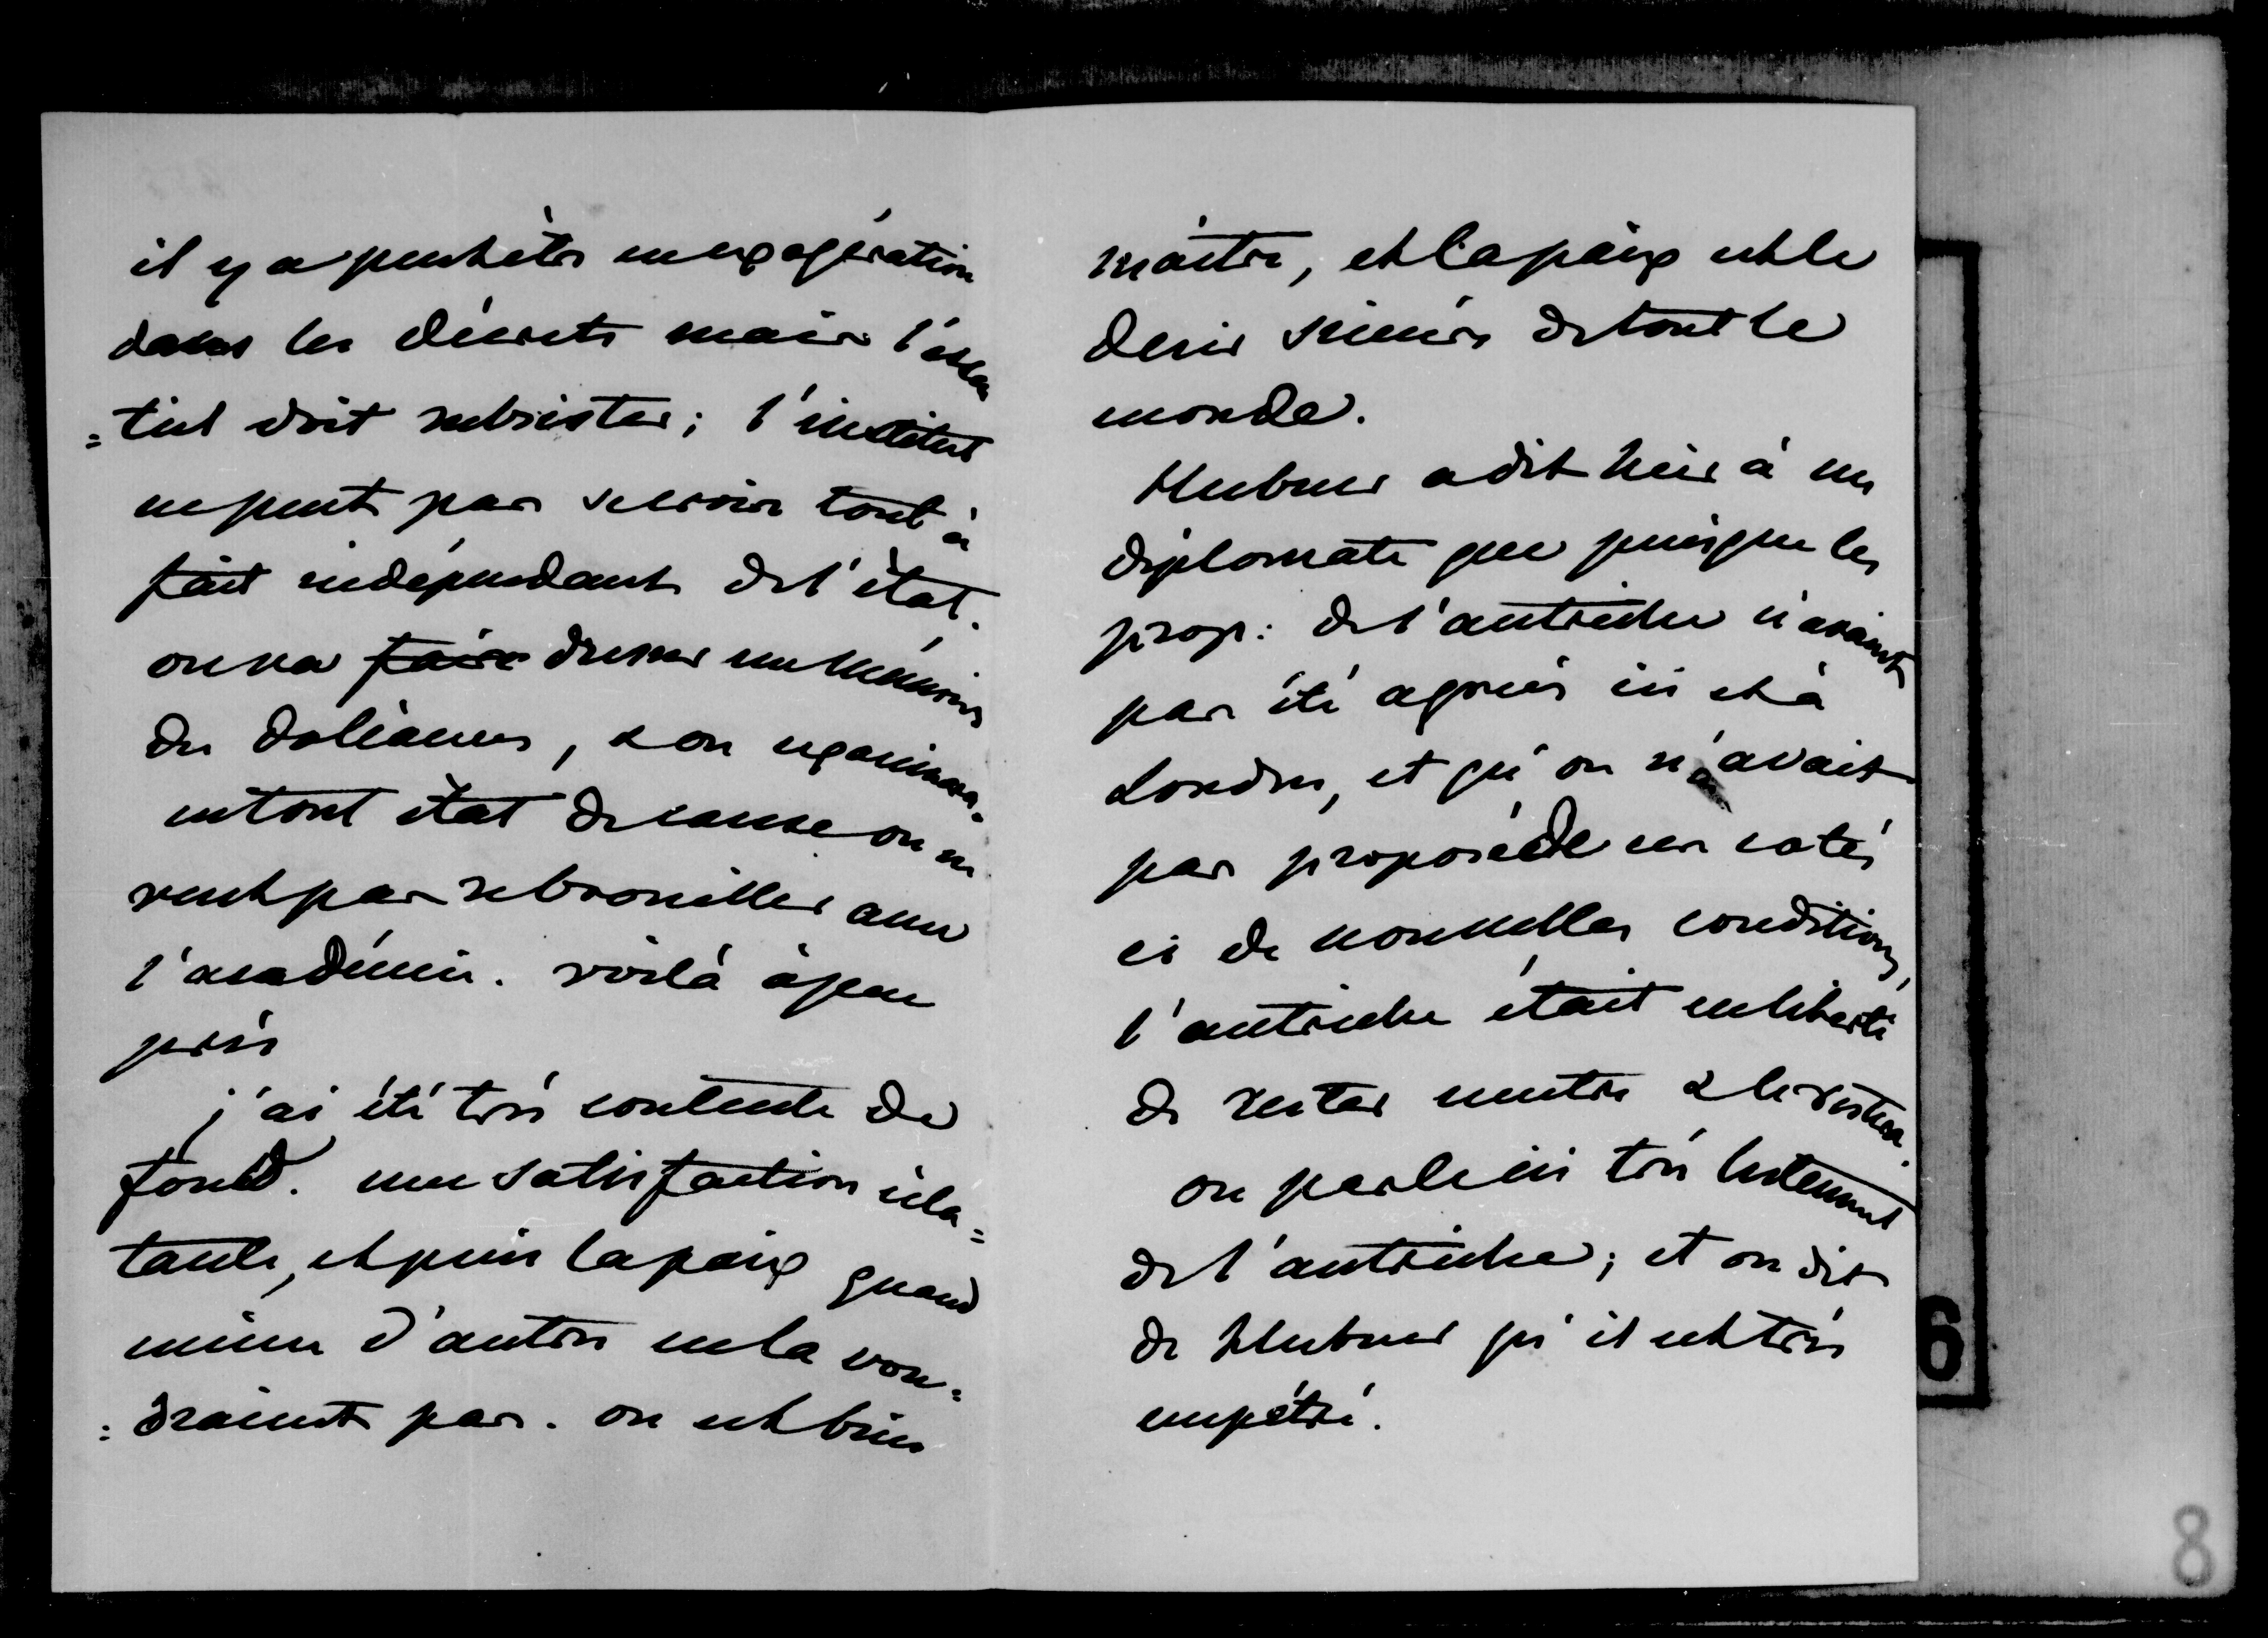 il y a peut être eu exagération
dans les décrets mais l'essen
=tiel doit subsister; l'institut
ne peut pas se croire tout à
fait indépendant de l'état.
on va faire dresser un mémoire
des doléances, & on examinera.
en tout état de cause on ne
veut pas se brouiller avec
l'académie. voilà à peu
près
j'ai été très contente de
Fould. une satisfaction écla=
tante, et puis la paix quand
même d'autres ne la vou=
=draient pas. on est bien
maitre, et la paix est le
desir sincère de tout le
monde.
Hubner a dit hier à un
diplomate que puisque les
prop: de l'autriche n'avaient
pas été agréés ici et à
Londres, et qu'on n'avait
pas proposé de ces cotés
ci de nouvelles conditions,
l'autriche était en liberté
de rester neutre & le restera.
on parle ici très lestement
de l'autriche; et on dit
de Hubner qu'il est très
empétré.
6
8